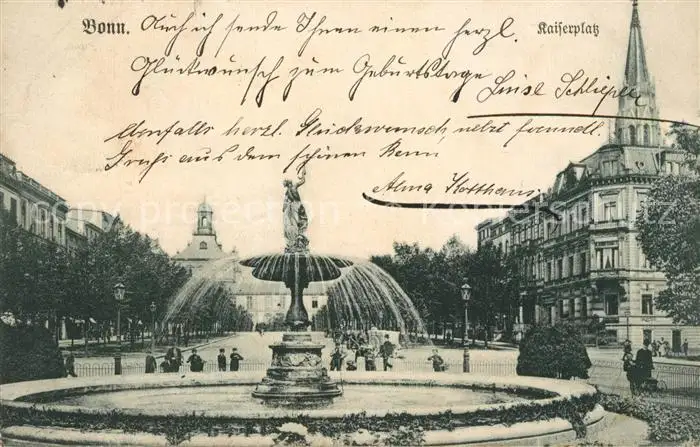 Bonn.
Kaiserplatz
Auch ich sende Ihnen einen herzl.
Glückwunsch zum Geburtstage
Luise Schlieper
Ebenfalls herzl. Glückwunsch, nebst freundl.
Gruß aus dem schönen Bonn
Alma Kotthaus